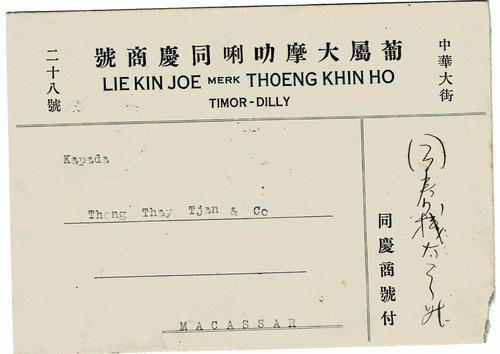 葡屬大摩叻唎同慶商號
中華大街
二十八號
LIE KIN JOE MERK THOENG KHIN HO
TIMOR-DILLY
Kapada
Thong Thay Tjan & Co
MACASSAR
回春棧
同慶商號付